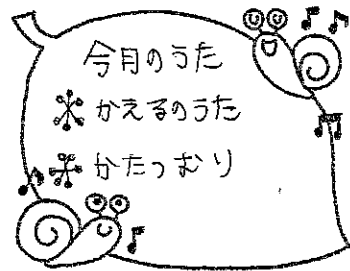 今月のうた
＊かえるのうた
＊かたつむり